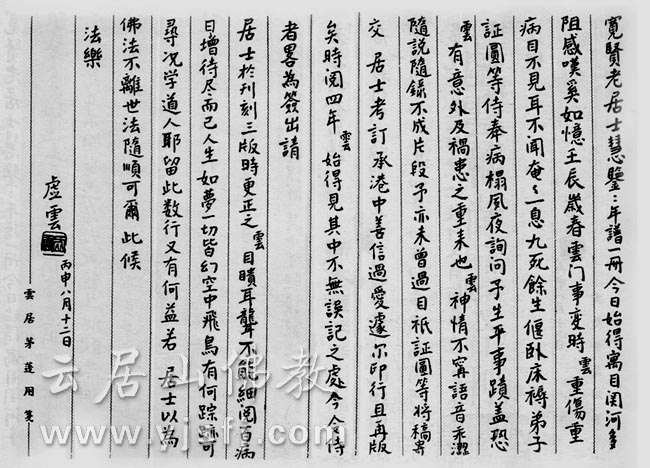 寬賢老居士慧鑒:年譜一冊今日始得寓目関河多
阻感嘆奚如憶壬辰歲春雲门事变時雲重傷重
病目不見耳不聞奄々一息九死餘生偃卧床褥弟子
証圓等侍奉病榻夙夜詢問予生平事蹟盖恐
雲有意外及禍患之重来也雲神情不寧語音乖澀
隨説隨錄不成片段予亦未曾過目祇証圓等將稿寄
交 居士考訂承港中善信過愛遽尔印行且再版
矣時閲四年雲始得見其中不無誤記之處今令侍
者畧為簽出請
居士於刋刻三版時更正之雲目瞶耳聾不能細閲百病
日增待尽而已人生如夢一切皆幻空中飛鳥有何踪跡可
尋况学道人耶留此数行又有何益若 居士以為
佛法不離世法隨順可爾此候
法樂
虛雲
丙申八月十二日
雲居茅蓬用箋
云居山佛教
www.yjsfj.com